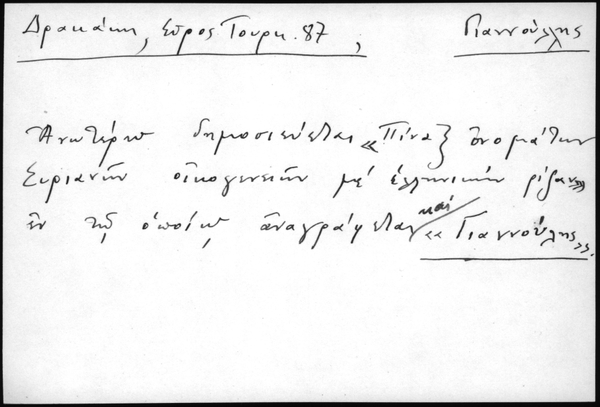 Δρακάκη, Σῦρος Τουρκ. 87, Γιαννούλης
Ἀνωτέρω δημοσιεύεται «Πίναξ ὀνομάτων
Συριανῶν οἰκογενειῶν μέ ἑλληνικήν ρίζαν»
ἐν τῷ ὁποίῳ ἀναγράφεται καί «Γιαννούλης».